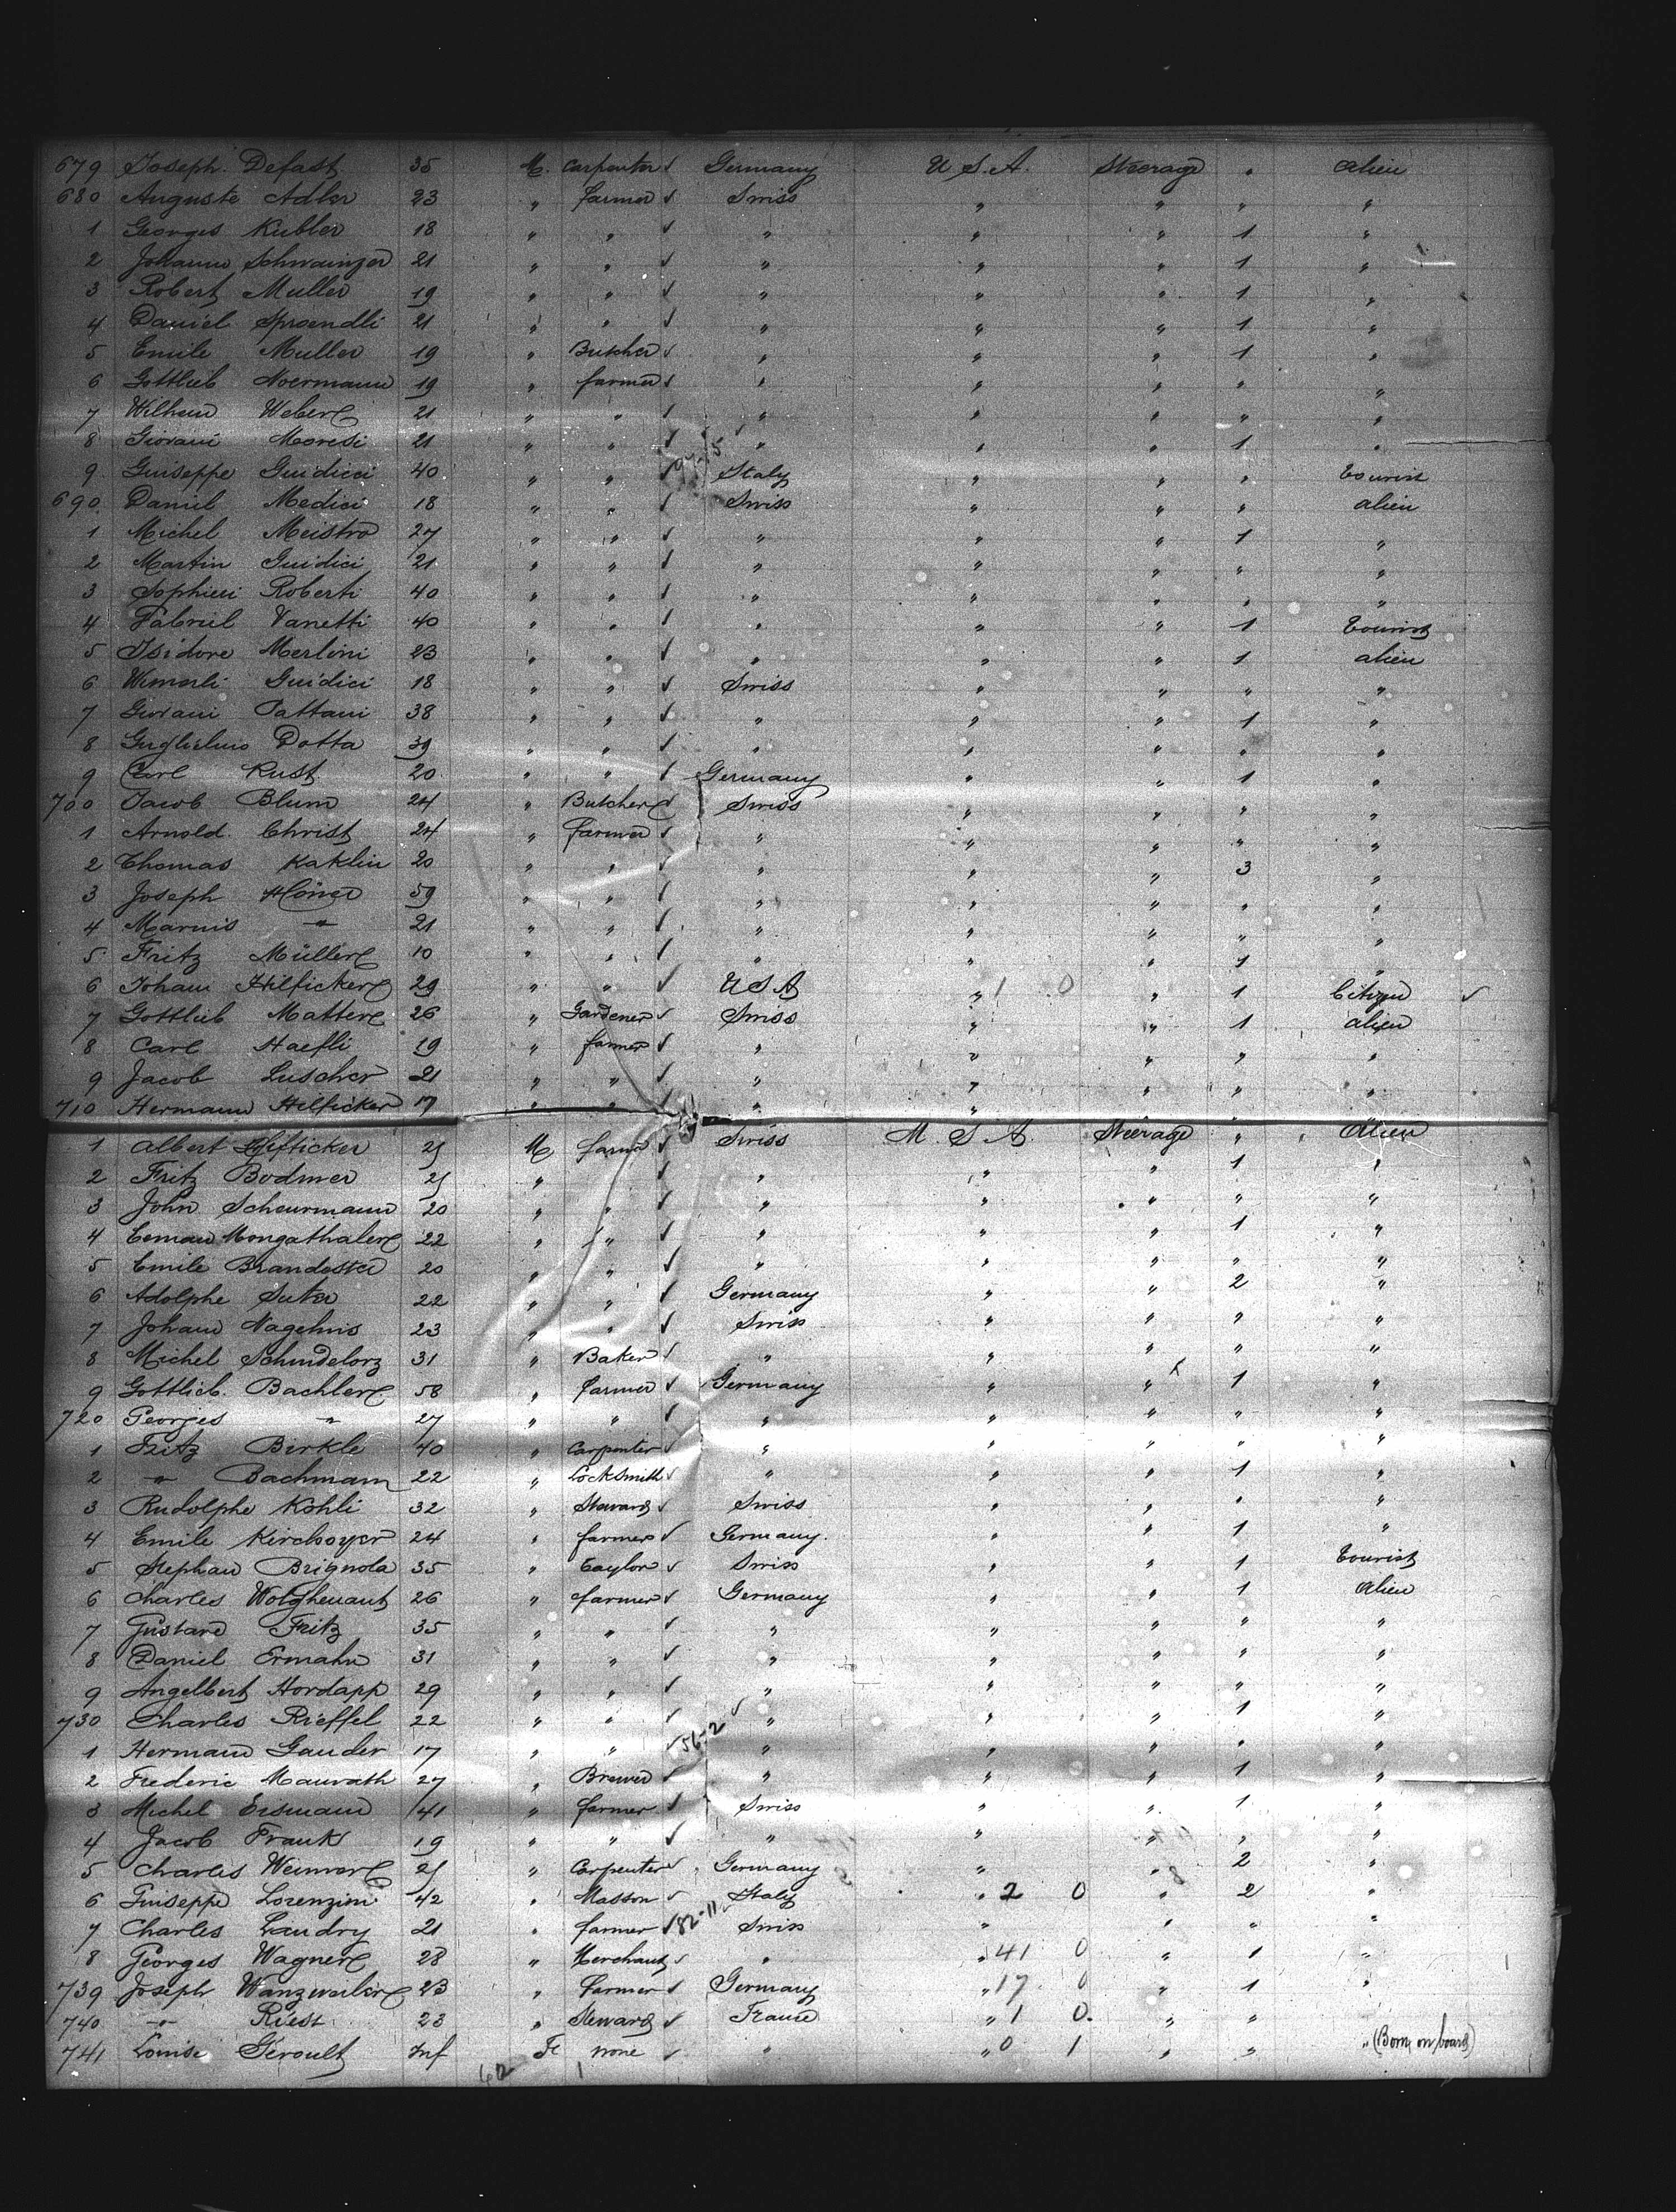 679 Joseph Defast 35 M. Carpenter ✓ Germany U.S.A. Steerage " alien
680 Auguste Adler 23 " farmer ✓ Swiss " " " "
1 Georges Kubler 18 " " ✓ " " " 1 "
2 Johann Schwainzer 21 " " ✓ " " " 1 "
3 Robert Muller 19 " " ✓ " " " 1 "
4 Daniel Sproendli 21 " " ✓ " " " 1 "
5 Emile Muller 19 " Butcher ✓ " " " 1 "
6 Gottlieb Noermann 19 " farmer ✓ " " " " "
7 Wilhem Weber 21 " " ✓ " " " " "
8 Giovani Moresi 21 " " ✓ " " " 1 "
9 Guiseppe Guidicci 40 " " ✓ Italy " " " tourist
690 Daniel Medici 18 " " ✓ Swiss " " " alien
1 Michel Meistro 27 " " ✓ " " " 1 "
2 Martin Guidici 21 " " ✓ " " " " "
3 Roberti 40 " " ✓ " " " " "
4 Fabriel Vanetti 40 " " ✓ " " " 1 tourist
5 Isidore Merlini 23 " " ✓ " " " 1 alien
6 Guidici 18 " " ✓ Swiss " " " "
7 Giovani Pattani 38 " " ✓ " " " 1 "
8 Guglielmo Dotta 39 " " ✓ " " " " "
9 Carl Rust 20 " " ✓ Germany " " 1 "
700 Jacob Blum 24 " Butcher ✓ Swiss " " " "
1 Arnold Christ 24 " farmer ✓ " " " " "
2 Thomas Kaklin 20 " " ✓ " " " 3 "
3 Joseph Höner 59 " " ✓ " " " " "
4 Marnis " 21 " " ✓ " " " " "
5 Fritz Müller 10 " " ✓ " " " 1 "
6 Johann Hilficker 29 " " ✓ USA " 1 0 " 1 Citizen ✓
7 Gottlieb Matter 26 " Gardener ✓ Swiss " " 1 alien
8 Carl Haefli 19 " farmer ✓ " " " " "
9 Jacob Luscher 21 " " ✓ " " " " "
710 Hermann Hilficker 17 " " ✓ " "
1 Albert Hilfticker 21 M farmer ✓ Swiss U.S.A Steerage " Alien
2 Fritz Bodmer 21 " ✓ " " " 1 "
3 John Scheurmann 20 " " ✓ " " " " "
4 Mongathaler 22 " " ✓ " " " 1 "
5 Emile Brandester 20 " " ✓ " " " " "
6 Adolphe Suter 22 " " ✓ Germany " " 2 "
7 Johann Nagelnis 23 " " ✓ Swiss " " " "
8 Michel Schindelorz 31 " Baker ✓ " " " " "
9 Gottlieb Bachler 58 " farmer ✓ Germany " " 1 "
720 Georges " 27 " " ✓ " " " " "
1 Fritz Birkle 40 " Carpenter ✓ " " " " "
2 " Bachmann 22 " Locksmith ✓ " " " 1 "
3 Rudolphe Kohli 32 " Steward ✓ Swiss " " " "
4 Emile Kirchoyer 24 " farmer ✓ Germany " " 1 "
5 Stephan Brignola 35 " Taylor ✓ Swiss " " 1 tourist
6 Charles Wolghenant 26 " farmer ✓ Germany " " 1 alien
7 Gustave Fritz 35 " " ✓ " " " " "
8 Daniel Ermahn 31 " " ✓ " " " " "
9 Angelbert Hordapp 29 " " ✓ " " " " "
730 Charles Rieffel 22 " " ✓ " " " 1 "
1 Hermann Gander 17 " " ✓ 56-2 " " " " "
2 Frederic Maurath 27 " Brewer ✓ " " " 1 "
3 Michel Eismann 41 " farmer ✓ Swiss " " 1 "
4 Jacob Frank 19 " " ✓ " " " " "
5 Charles Weimer 21 " Carpenter ✓ Germany " " 2 "
6 Guiseppe Lorenzini 42 " Masson ✓ Italy " 2 0 " 2 "
7 Charles Landry 21 " farmer ✓ 82-11 Swiss " " " "
8 Georges Wagner 28 " Merchant ✓ " " 41 0 " 1 "
739 Joseph Wanzweiler 23 " farmer ✓ Germany " 17 0 " 1 "
740 " Riest 23 " Steward ✓ France " 1 0 " "
741 Louise Geroult Inf Fe none ✓ " " 0 1 " " " (Born on board)
62 1